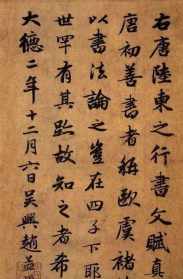 右唐陸柬之行書文賦真
唐初善書者稱歐虞褚
以書法論之豈在四子下耶
世罕有其跡故知之者希
大德二年十二月六日吳興趙孟